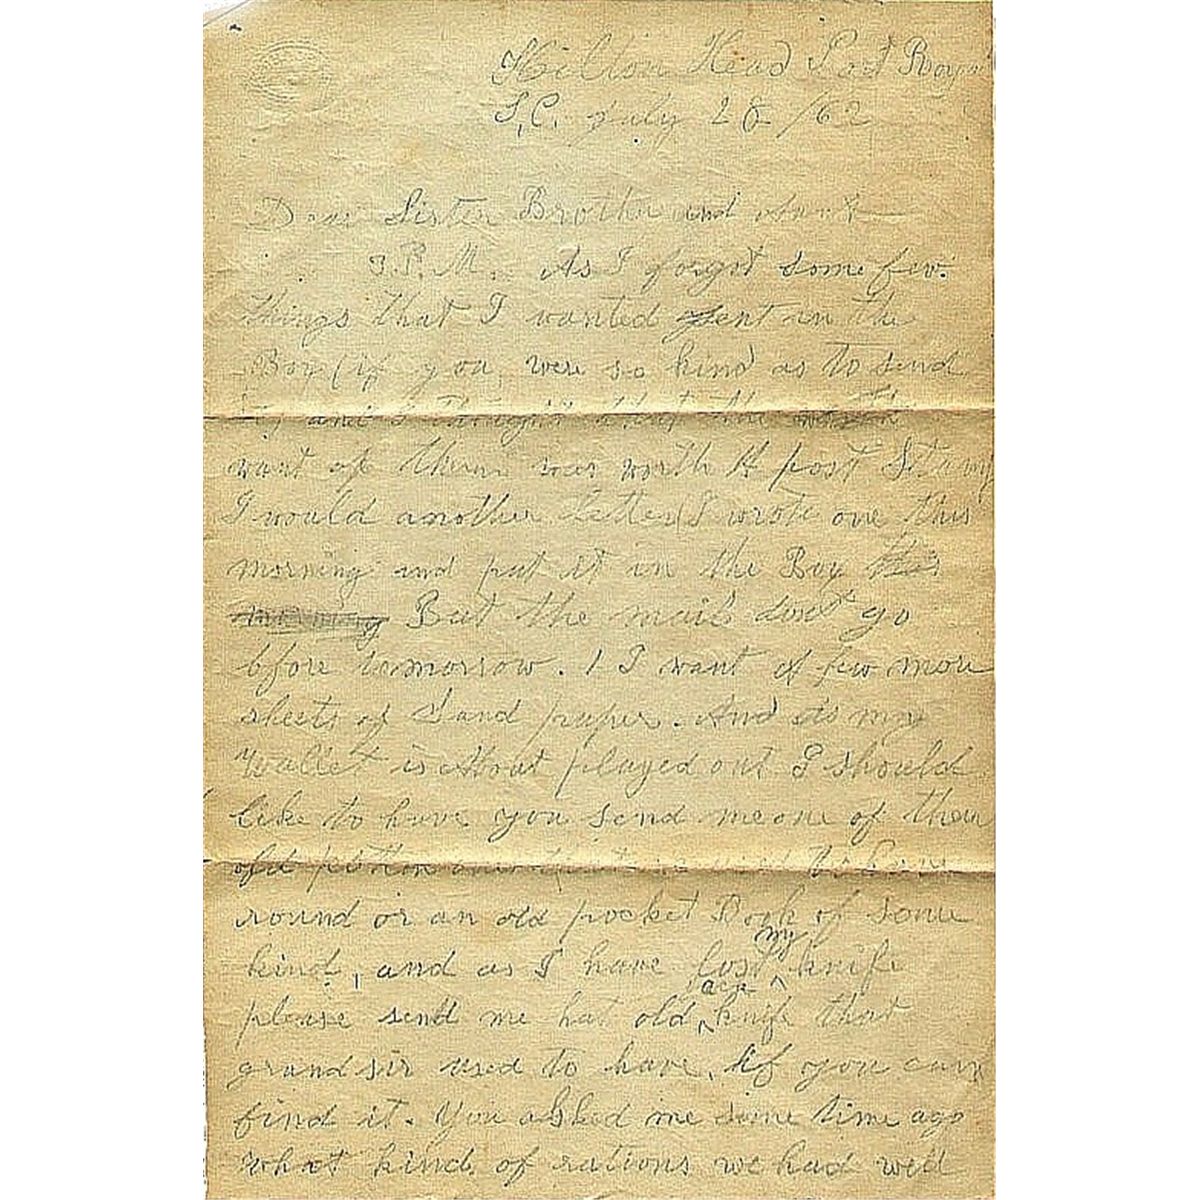 Hilton Head Port Roy
S.C. July 28 /62
Dear Sister Brother and
J.P.M. As I forgot some few
things that I wanted sent in the
Box (if you were so kind as to send
it) and I thought that the
want of them was worth A post Stamp
I would another Letter (I wrote one this
morning and put it in the Box this
morning But the mail dont go
bfore tomorrow. / I want A few more
sheets of Sand paper. And as my
Wallet is About played out I should
like to have you send me one of them
old that we used to have
round or an old pocket Book of some
kind, and as I have lost my knife
please send me hat old jack knife that
grandsir used to have, if you can
find it. You asked me some time ago
what kind of rations we had well